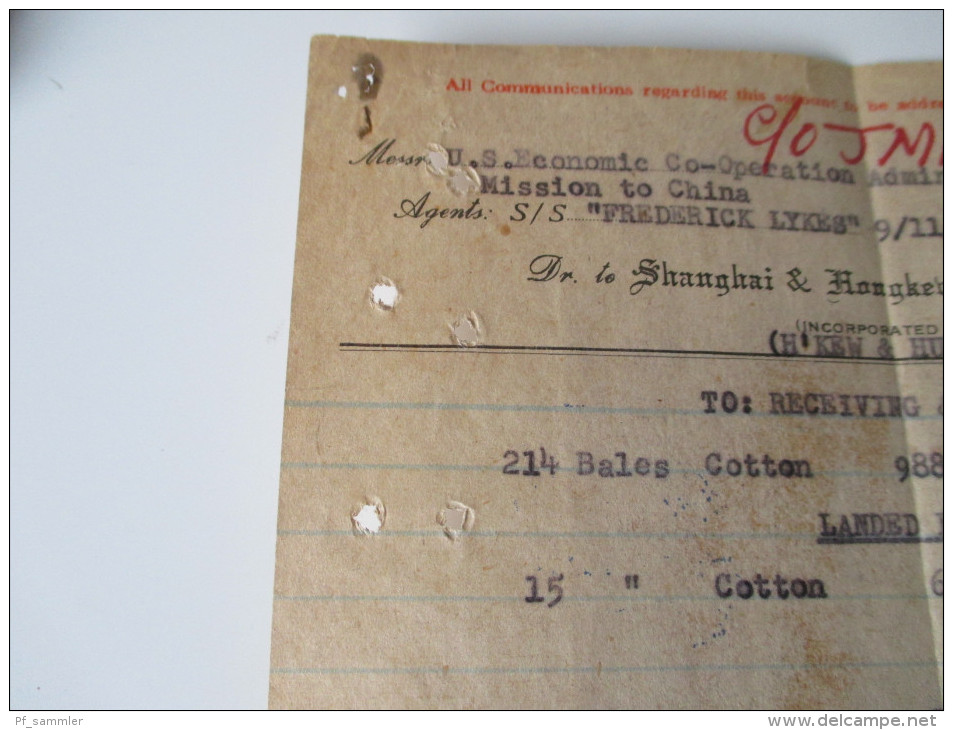 All Communications regarding this account to be addre
C/O JM
Messrs U.S.Economic Co-Operation Admin
Mission to China
Agents: S/S "FREDERICK LYKES" 9/11
Dr. to Shanghai & Hongkew
(INCORPORATED
(H'KEW & HU
TO: RECEIVING &
214 Bales Cotton 988
LANDED
15 " Cotton 6
Pf_sammler
www.delcampe.net